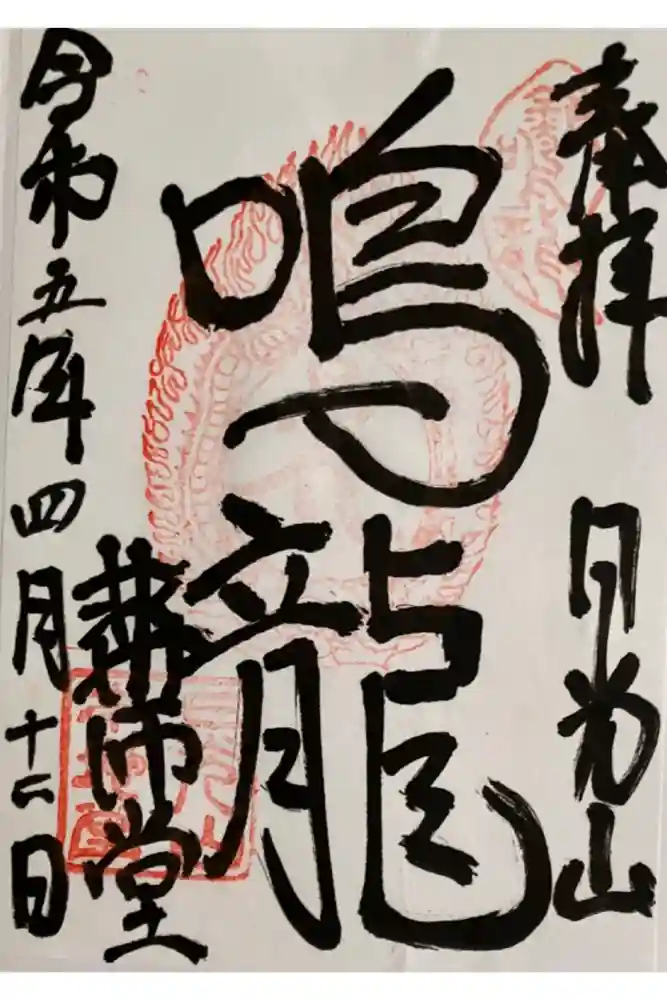 奉拝 日光山
鳴龍
薬師堂
令和五年四月十二日